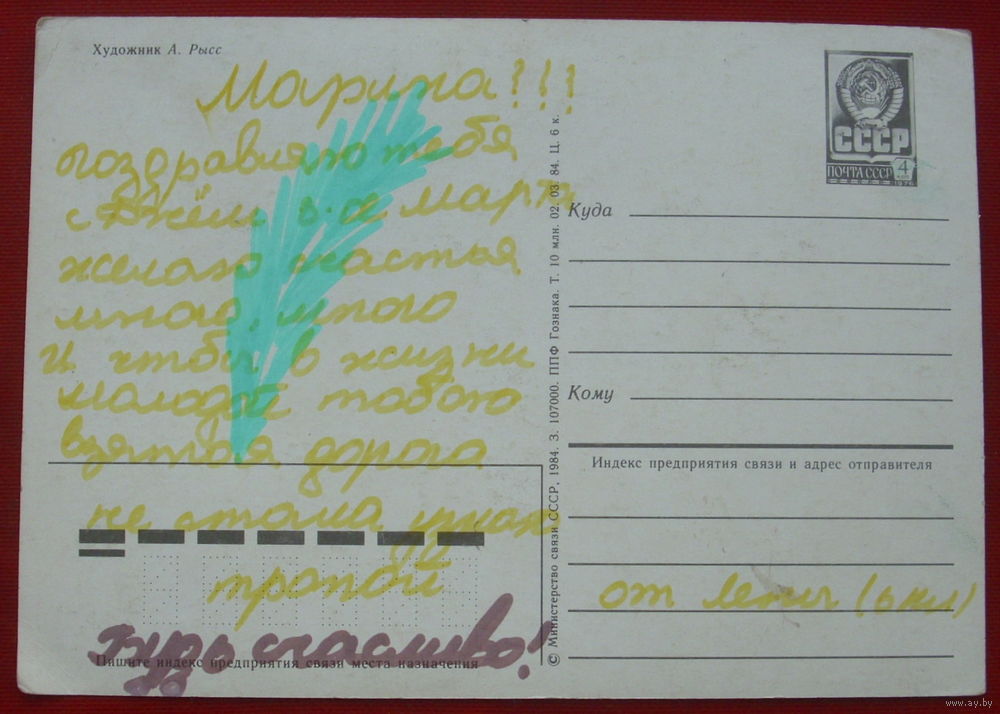 Художник А. Рысс
Марина!!!
поздравляю тебя
с Днём 8-е марта
желаю счастья
много, много
И чтобы в жизни
молодой тобою
взятая дорога
не стала узкою
тропой
Будь счастлива!
Пишите индекс предприятия связи места назначения
© Министерство связи СССР, 1984. З. 107000. ППФ Гознака. Т. 10 млн. 02. 03. 84. Ц. 6 к.
СССР
ПОЧТА СССР 4
1976
Куда
Кому
Индекс предприятия связи и адрес отправителя
от Лены (6 кл)
www.ay.by